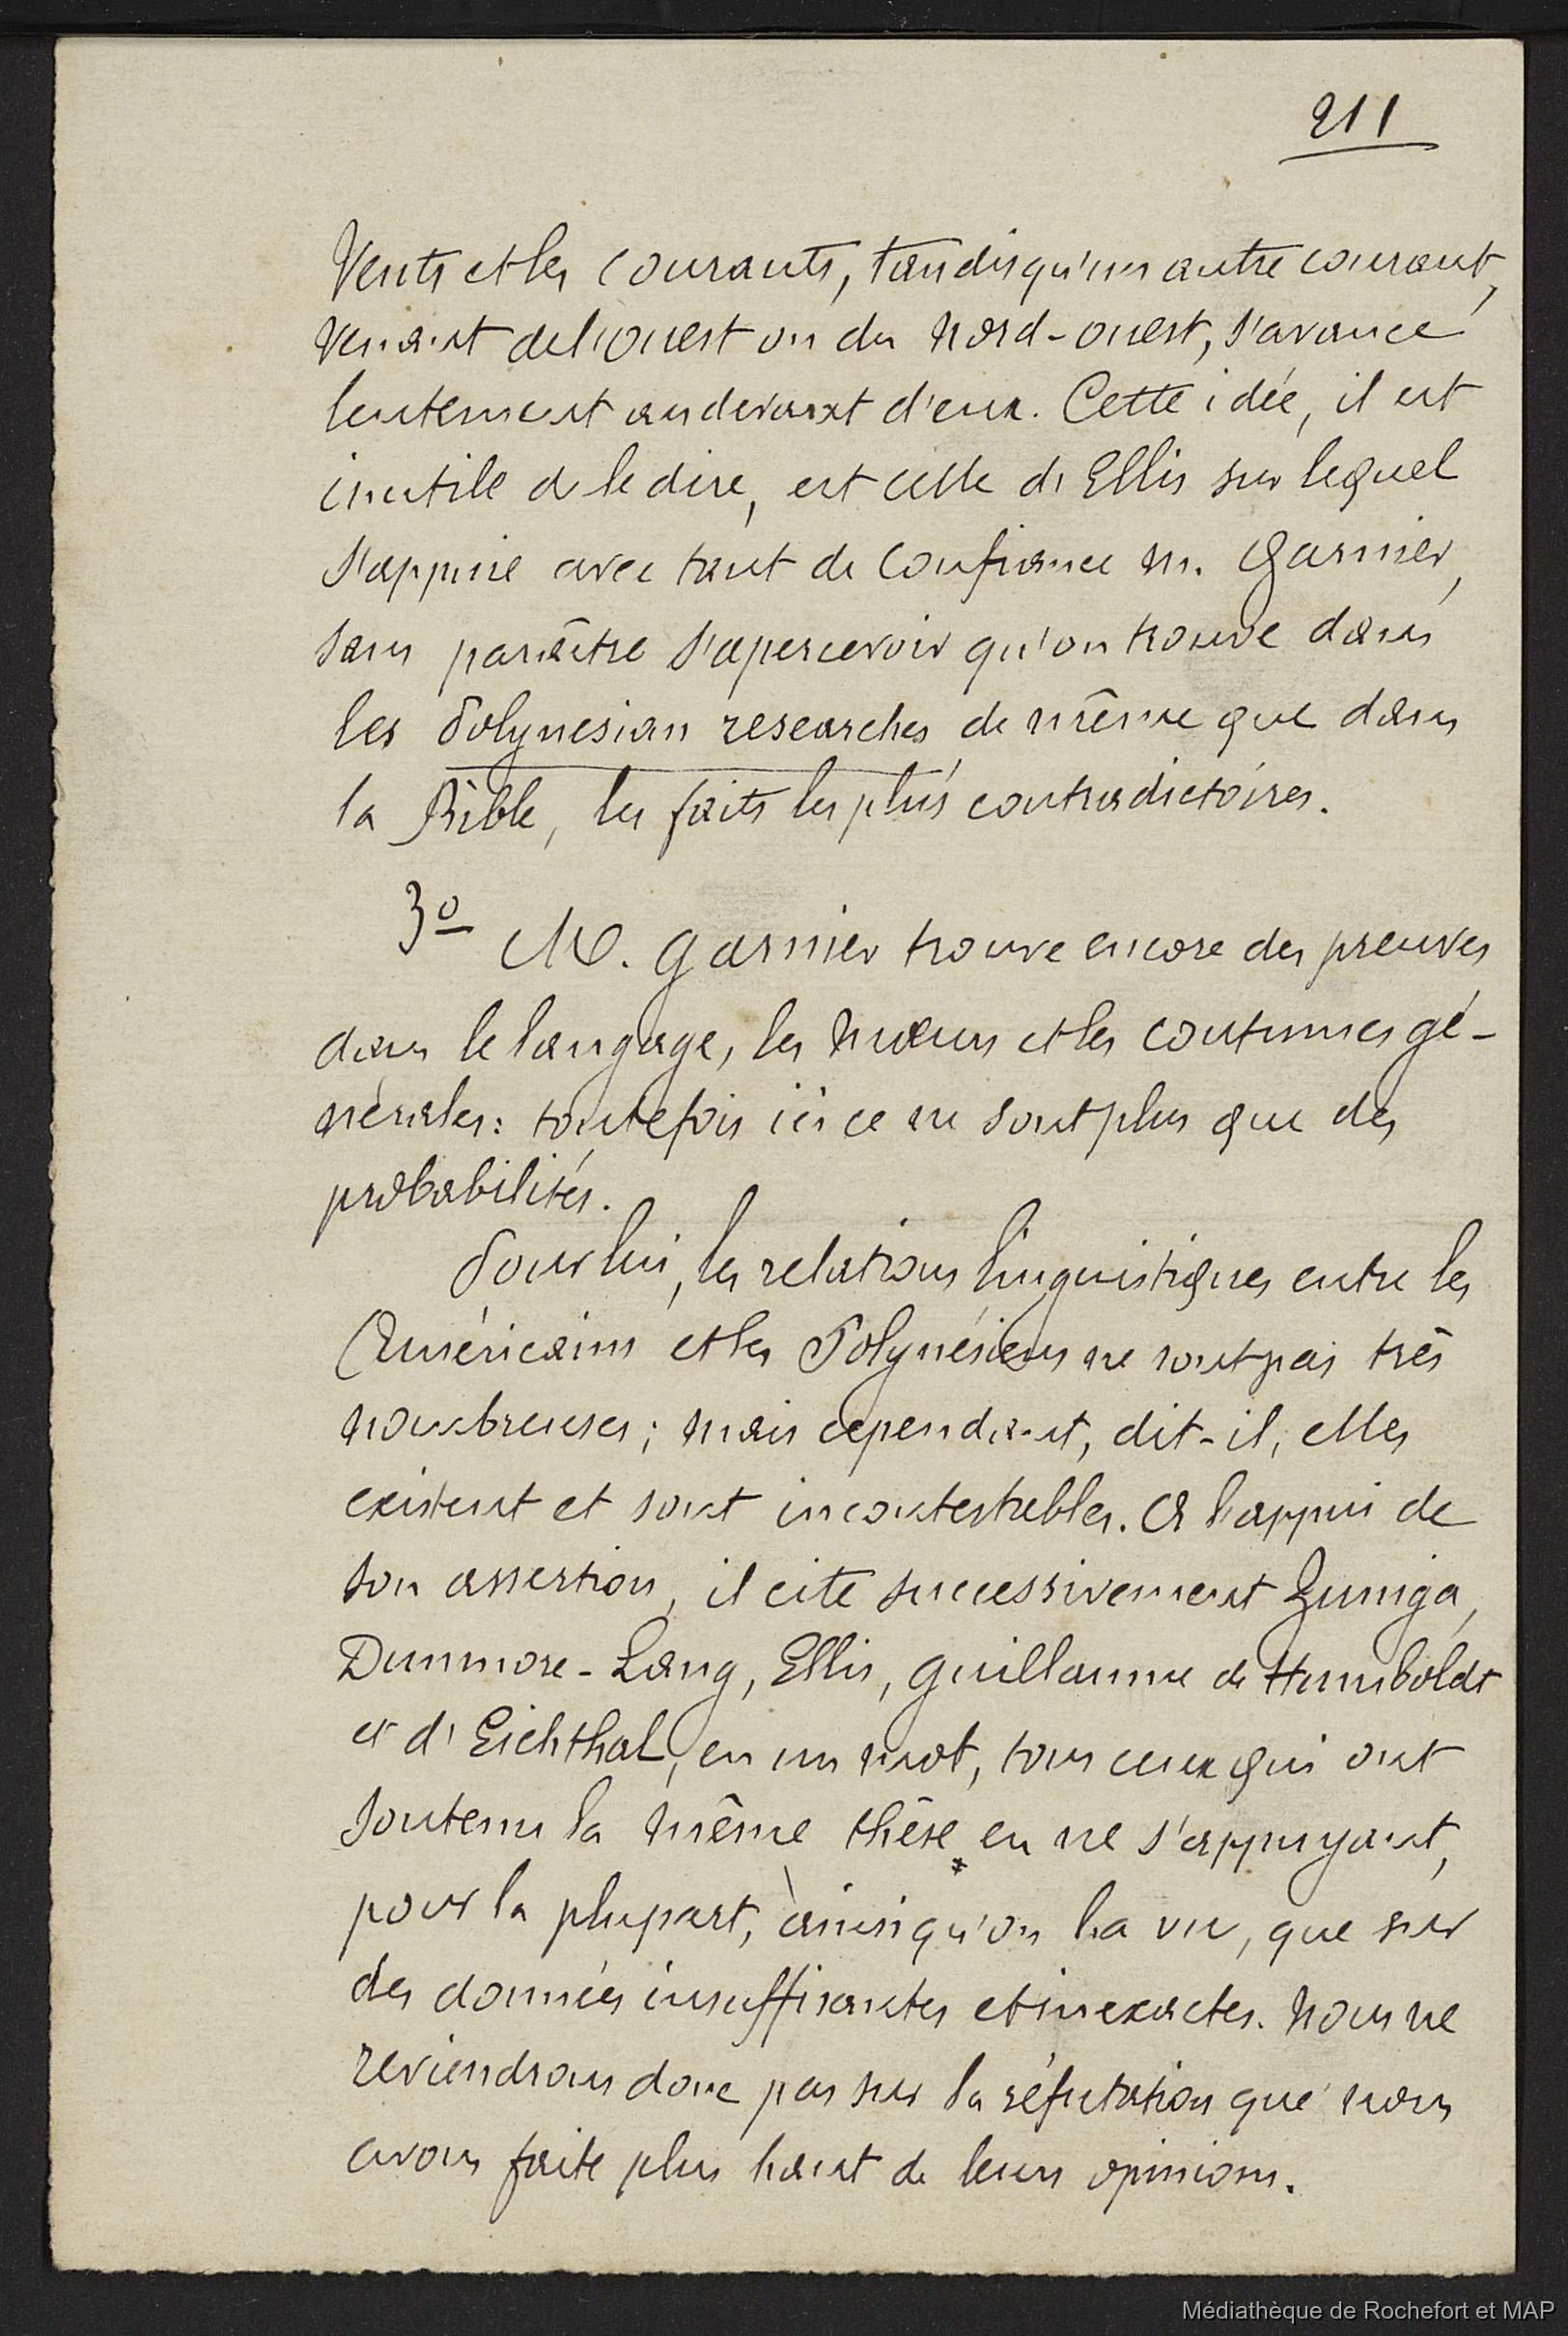 211
Vents et les courants, tandis qu'un autre courant,
venant de l'ouest ou du nord-ouest, s'avance
lentement au devant d'eux. Cette idée, il est
inutile de le dire, est celle de Ellis sur lequel
s'appuie avec tant de confiance M. Garnier,
sans paraître s'apercevoir qu'on trouve dans
les Polynesian researches, de même que dans
la Bible, les faits les plus contradictoires.
3º M. Garnier trouve encore des preuves
dans le langage, les mœurs et les coutumes gé-
nérales: toutefois ici ce ne sont plus que des
probabilités.
Pour lui, les relations linguistiques entre les
Américains et les Polynésiens ne sont pas très
nombreuses; mais cependant, dit-il, elles
existent et sont incontestables. A l'appui de
son assertion, il cite successivement Zuniga,
Dunmore-Lang, Ellis, Guillaume de Humboldt
et d'Eichthal, en un mot, tous ceux qui ont
soutenu la même thèse en ne s'appuyant,
pour la plupart, ainsi qu'on l'a vu, que sur
des données insuffisantes et inexactes. Nous ne
reviendrons donc pas sur la réfutation que nous
avons faite plus haut de leurs opinions.
Médiathèque de Rochefort et MAP